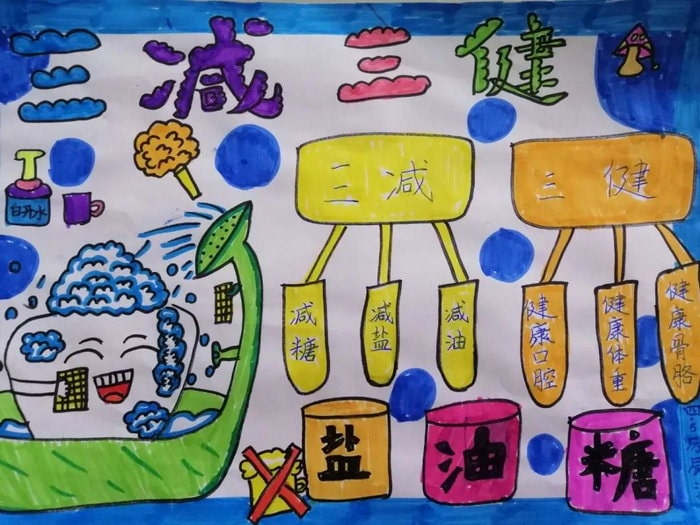 三减三健
白开水
三减
三健
减糖
减盐
减油
健康口腔
健康体重
健康骨骼
盐
油
糖